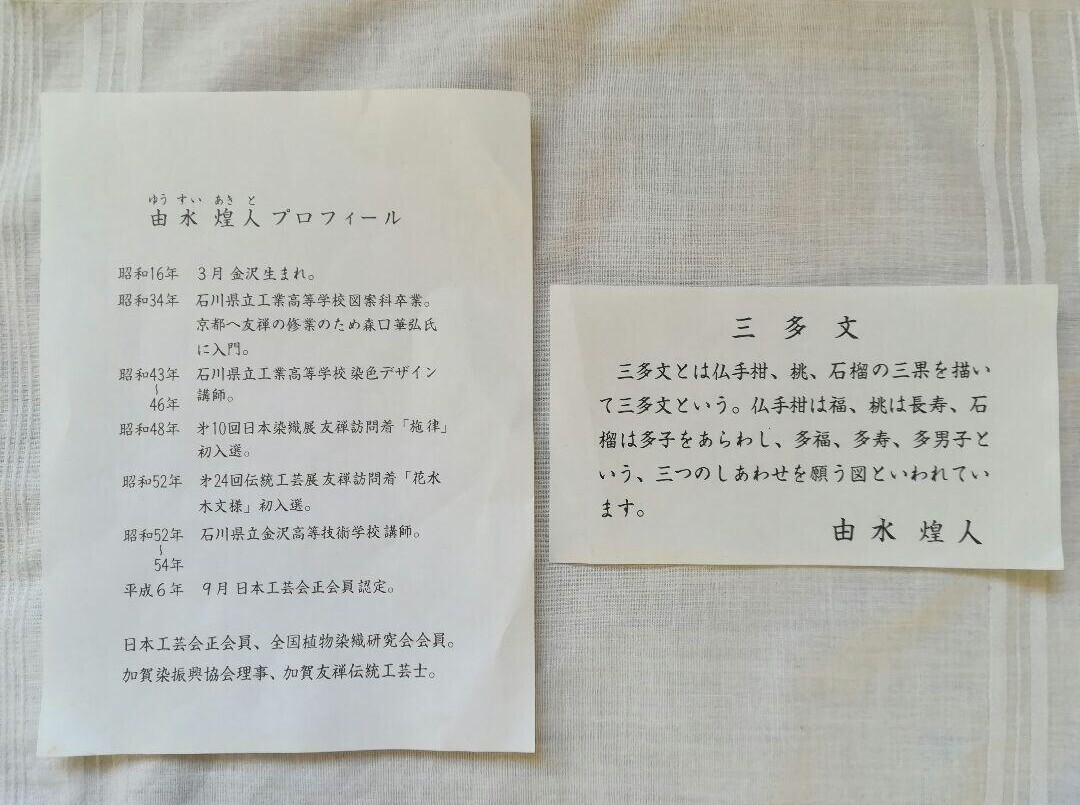 ゆう すい あき と
由水 煌人プロフィール
昭和16年 3月 金沢生まれ。
昭和34年 石川県立工業高等学校図案科卒業。
京都へ友禅の修業のため森口華弘氏
に入門。
昭和43年 石川県立工業高等学校染色デザイン
〜 講師。
46年
昭和48年 第10回日本染織展友禅訪問着「施律」
初入選。
昭和52年 第24回伝統工芸展友禅訪問着「花水
木文様」初入選。
昭和52年 石川県立金沢高等技術学校講師。
〜
54年
平成6年 9月 日本工芸会正会員認定。
日本工芸会正会員、全国植物染織研究会会員。
加賀染振興協会理事、加賀友禅伝統工芸士。
三多文
三多文とは仏手柑、桃、石榴の三果を描い
て三多文という。仏手柑は福、桃は長寿、石
榴は多子をあらわし、多福、多寿、多男子と
いう、三つのしあわせを願う図といわれてい
ます。
由水 煌人